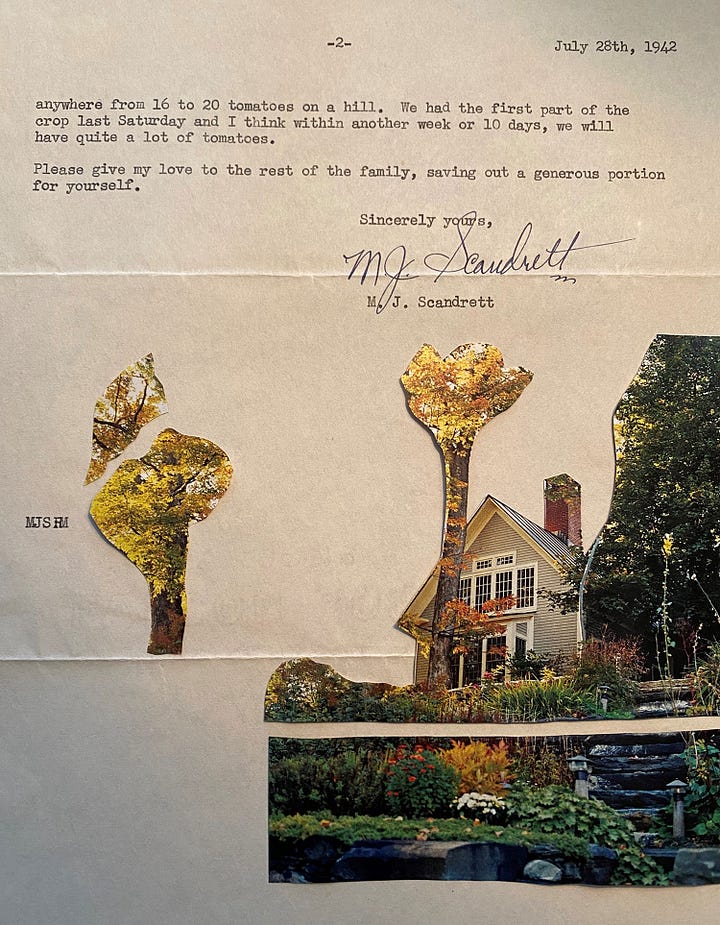 -2- July 28th, 1942
anywhere from 16 to 20 tomatoes on a hill. We had the first part of the
crop last Saturday and I think within another week or 10 days, we will
have quite a lot of tomatoes.
Please give my love to the rest of the family, saving out a generous portion
for yourself.
Sincerely yours,
M J. Scandrett
M. J. Scandrett